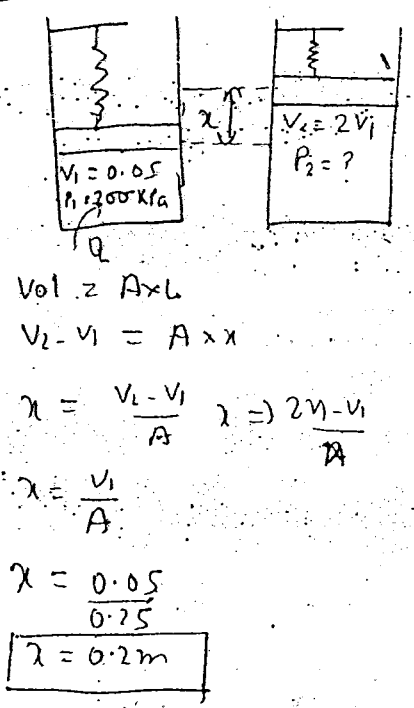 x
V₁ = 0.05
P₁ = 200 KPa
Q
V₂ = 2V₁
P₂ = ?
Vol = A×L
V₂ - V₁ = A × x
x = V₂ - V₁ / A x => 2V₁ - V₁ / A
x = V₁ / A
x = 0.05 / 0.25
x = 0.2m